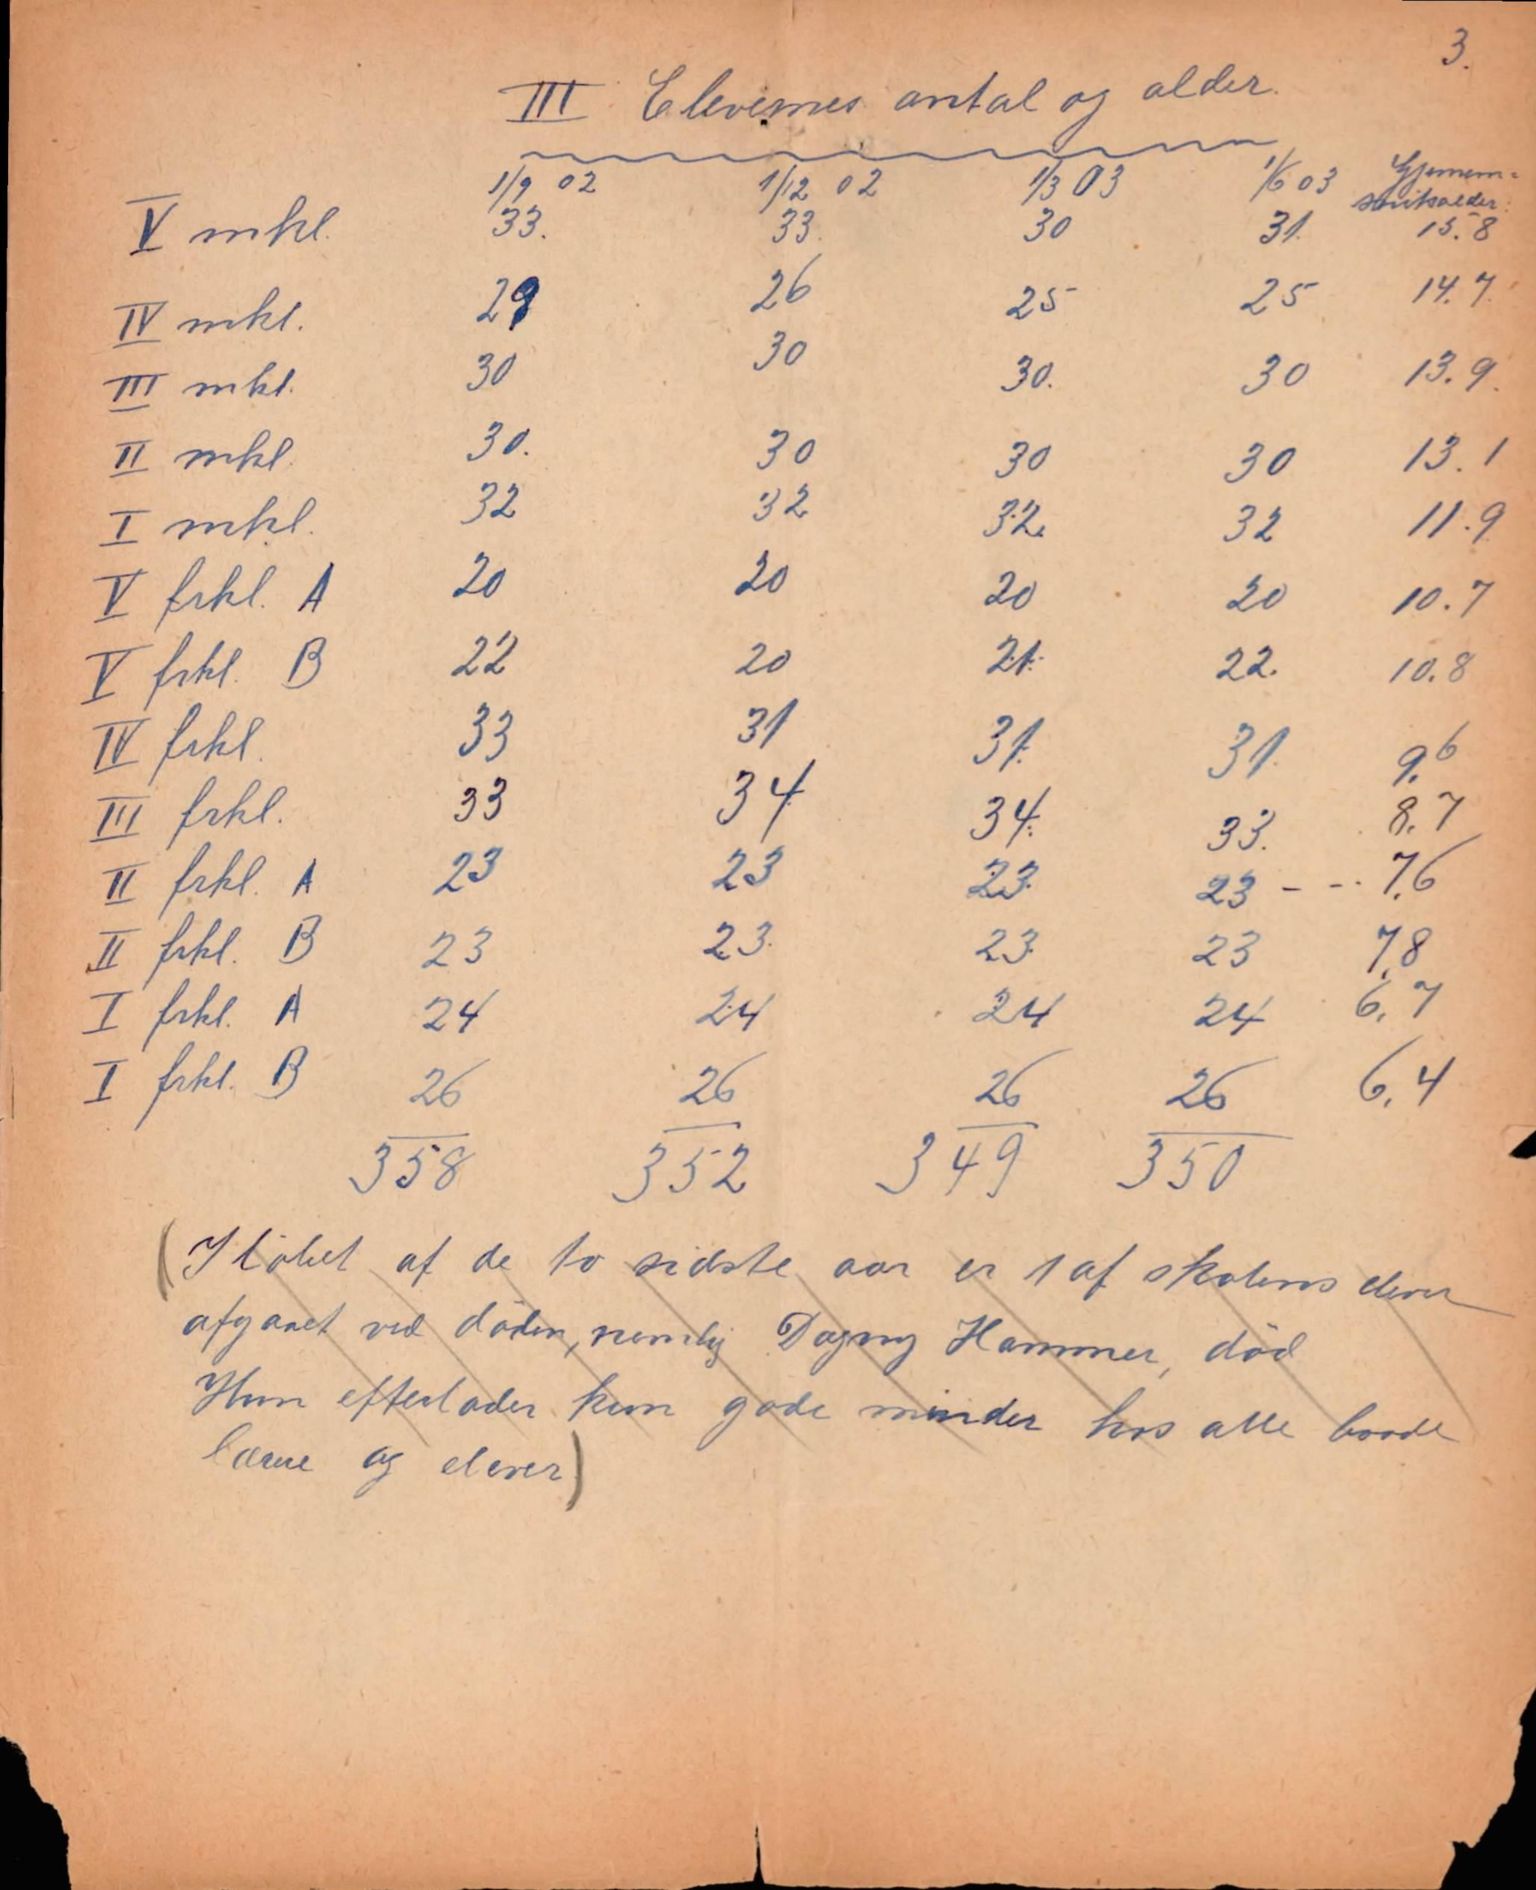 3.
III Elevernes antal og alder.
1/9 02 1/12 02 1/3 03 1/6 03 Gjennem-
snitsalder:
V mkl. 33. 33. 30 31. 15.8
IV mkl. 29 26 25 25 14.7.
III mkl. 30 30 30. 30 13.9.
II mkl. 30. 30 30 30 13.1
I mkl. 32 32 32. 32 11.9
V frkl. A 20 20 20 20 10.7
V frkl. B 22 20 21. 22. 10.8
IV frkl. 33 31 31. 31. 9.6
III frkl. 33 34 34. 33. 8.7
II frkl. A 23 23 23. 23 - - 7.6
II frkl. B 23 23. 23. 23 7.8
I frkl. A 24 24 24 24 6.7
I frkl. B 26 26 26 26 6.4
358 352 349 350
(I løbet af de to sidste aar er 1 af skolens elever
afgaaet ved døden, nemlig Dagny Hammer, død
Hun efterlader kun gode minder hos alle baade
lærere og elever)